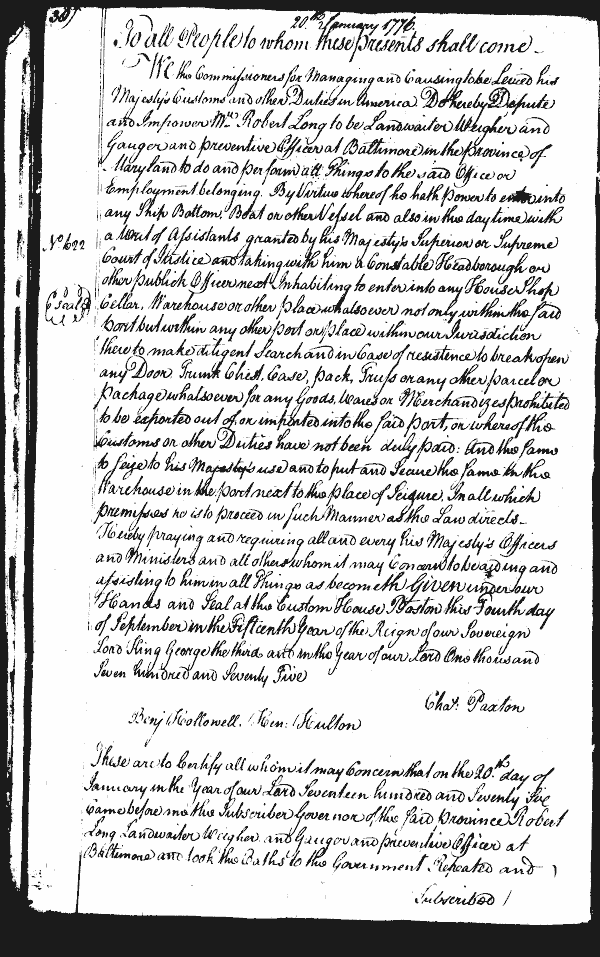 20.th January 1776.
To all People to whom these presents shall come
We the Commissioners for Managing and Causing to be Leived his
Majesty's Customs and other Duties in America Do hereby Depute
and Impower Mr. Robert Long to be Landwaiter Weigher and
Gauger and preventive Officer at Baltimore in the province of
Maryland to do and perform all Things to the said Office or
Employment belonging. By Virtue whereof he hath Power to enter into
any Ship Bottom, Boat or other Vessel and also in the day time with
a Writ of Assistants granted by his Majesty's Superior or Supreme
Court of Justice and taking with him a Constable Headborough or
other publick Officer next Inhabiting to enter into any House Shop
Cellar, Warehouse or other place whatsoever not only within the said
port but within any other port or place within our Jurisdiction
there to make diligent Search and in Case of resistence to break open
any Door Trunk Chest, Case, pack, Truss or any other parcel or
Package whatsoever for any Goods, Wares or Merchandizes prohibited
to be exported out of, or imported into the said port, or whereof the
Customs or other Duties have not been duly paid: And the same
to seize to his Majesty's use and to put and Secure the same in the
Warehouse in the port next to the place of Seizure. In all which
premisses he is to proceed in such Manner as the Law directs
Hereby praying and requiring all and every his Majesty's Officers
and Ministers and all others whom it may Concern to be aiding and
assisting to him in all Things as becometh Given under our
Hands and Seal at the Custom House Boston this Fourth day
of September in the Fifteenth Year of the Reign of our Sovereign
Lord King George the third and in the Year of our Lord One thousand
Seven hundred and Seventy Five
Chas. Paxton
Benj Hollowell. Hen: Hulton
No 622
Seal
These are to Certify all whom it may Concern that on the 20.th day of
January in the Year of our Lord Seventeen hundred and Seventy Six
Came before me the Subscriber Governor of the said Province Robert
Long Landwaiter Weigher and Gauger and preventive Officer at
Baltimore and took the Oaths to the Government Repeated and
Subscribed